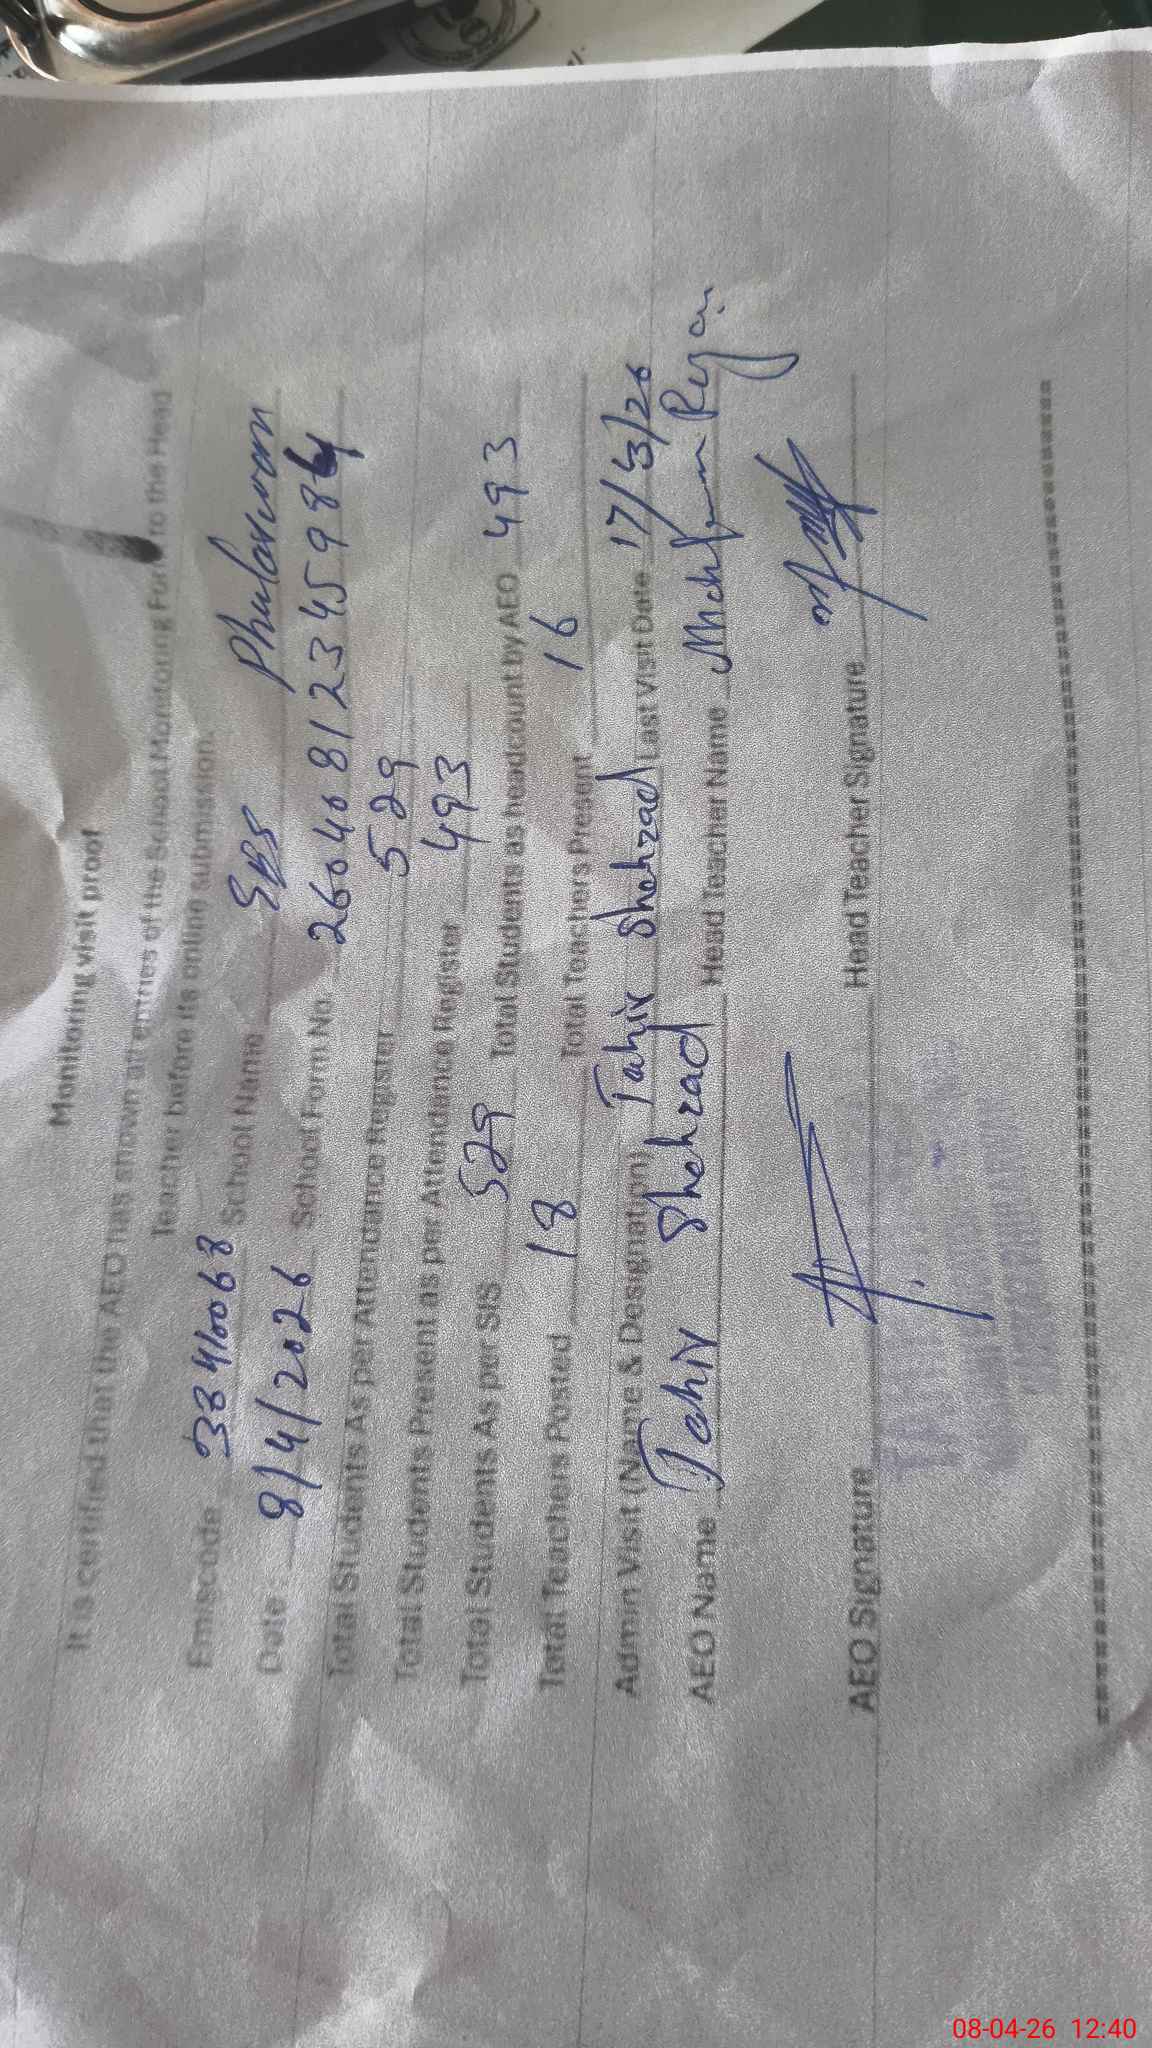 Monitoring visit proof
It is certified that the AEO has shown all entries of the School Monitoring Form to the Head
Teacher before its online submission.
Emiscode 33410068 School Name GBS Phularwan
Date: 8/4/2026 School Form No. 26040812345984
Total Students As per Attendance Register 529
Total Students Present as per Attendance Register 493
Total Students As per SIS 529 Total Students as headcount by AEO 493
Total Teachers Posted 18 Total Teachers Present 16
Admin Visit (Name & Designation) Tahir Shahzad Last Visit Date 17/3/26
AEO Name Tahir Shahzad Head Teacher Name
AEO Signature Head Teacher Signature
08-04-26 12:40